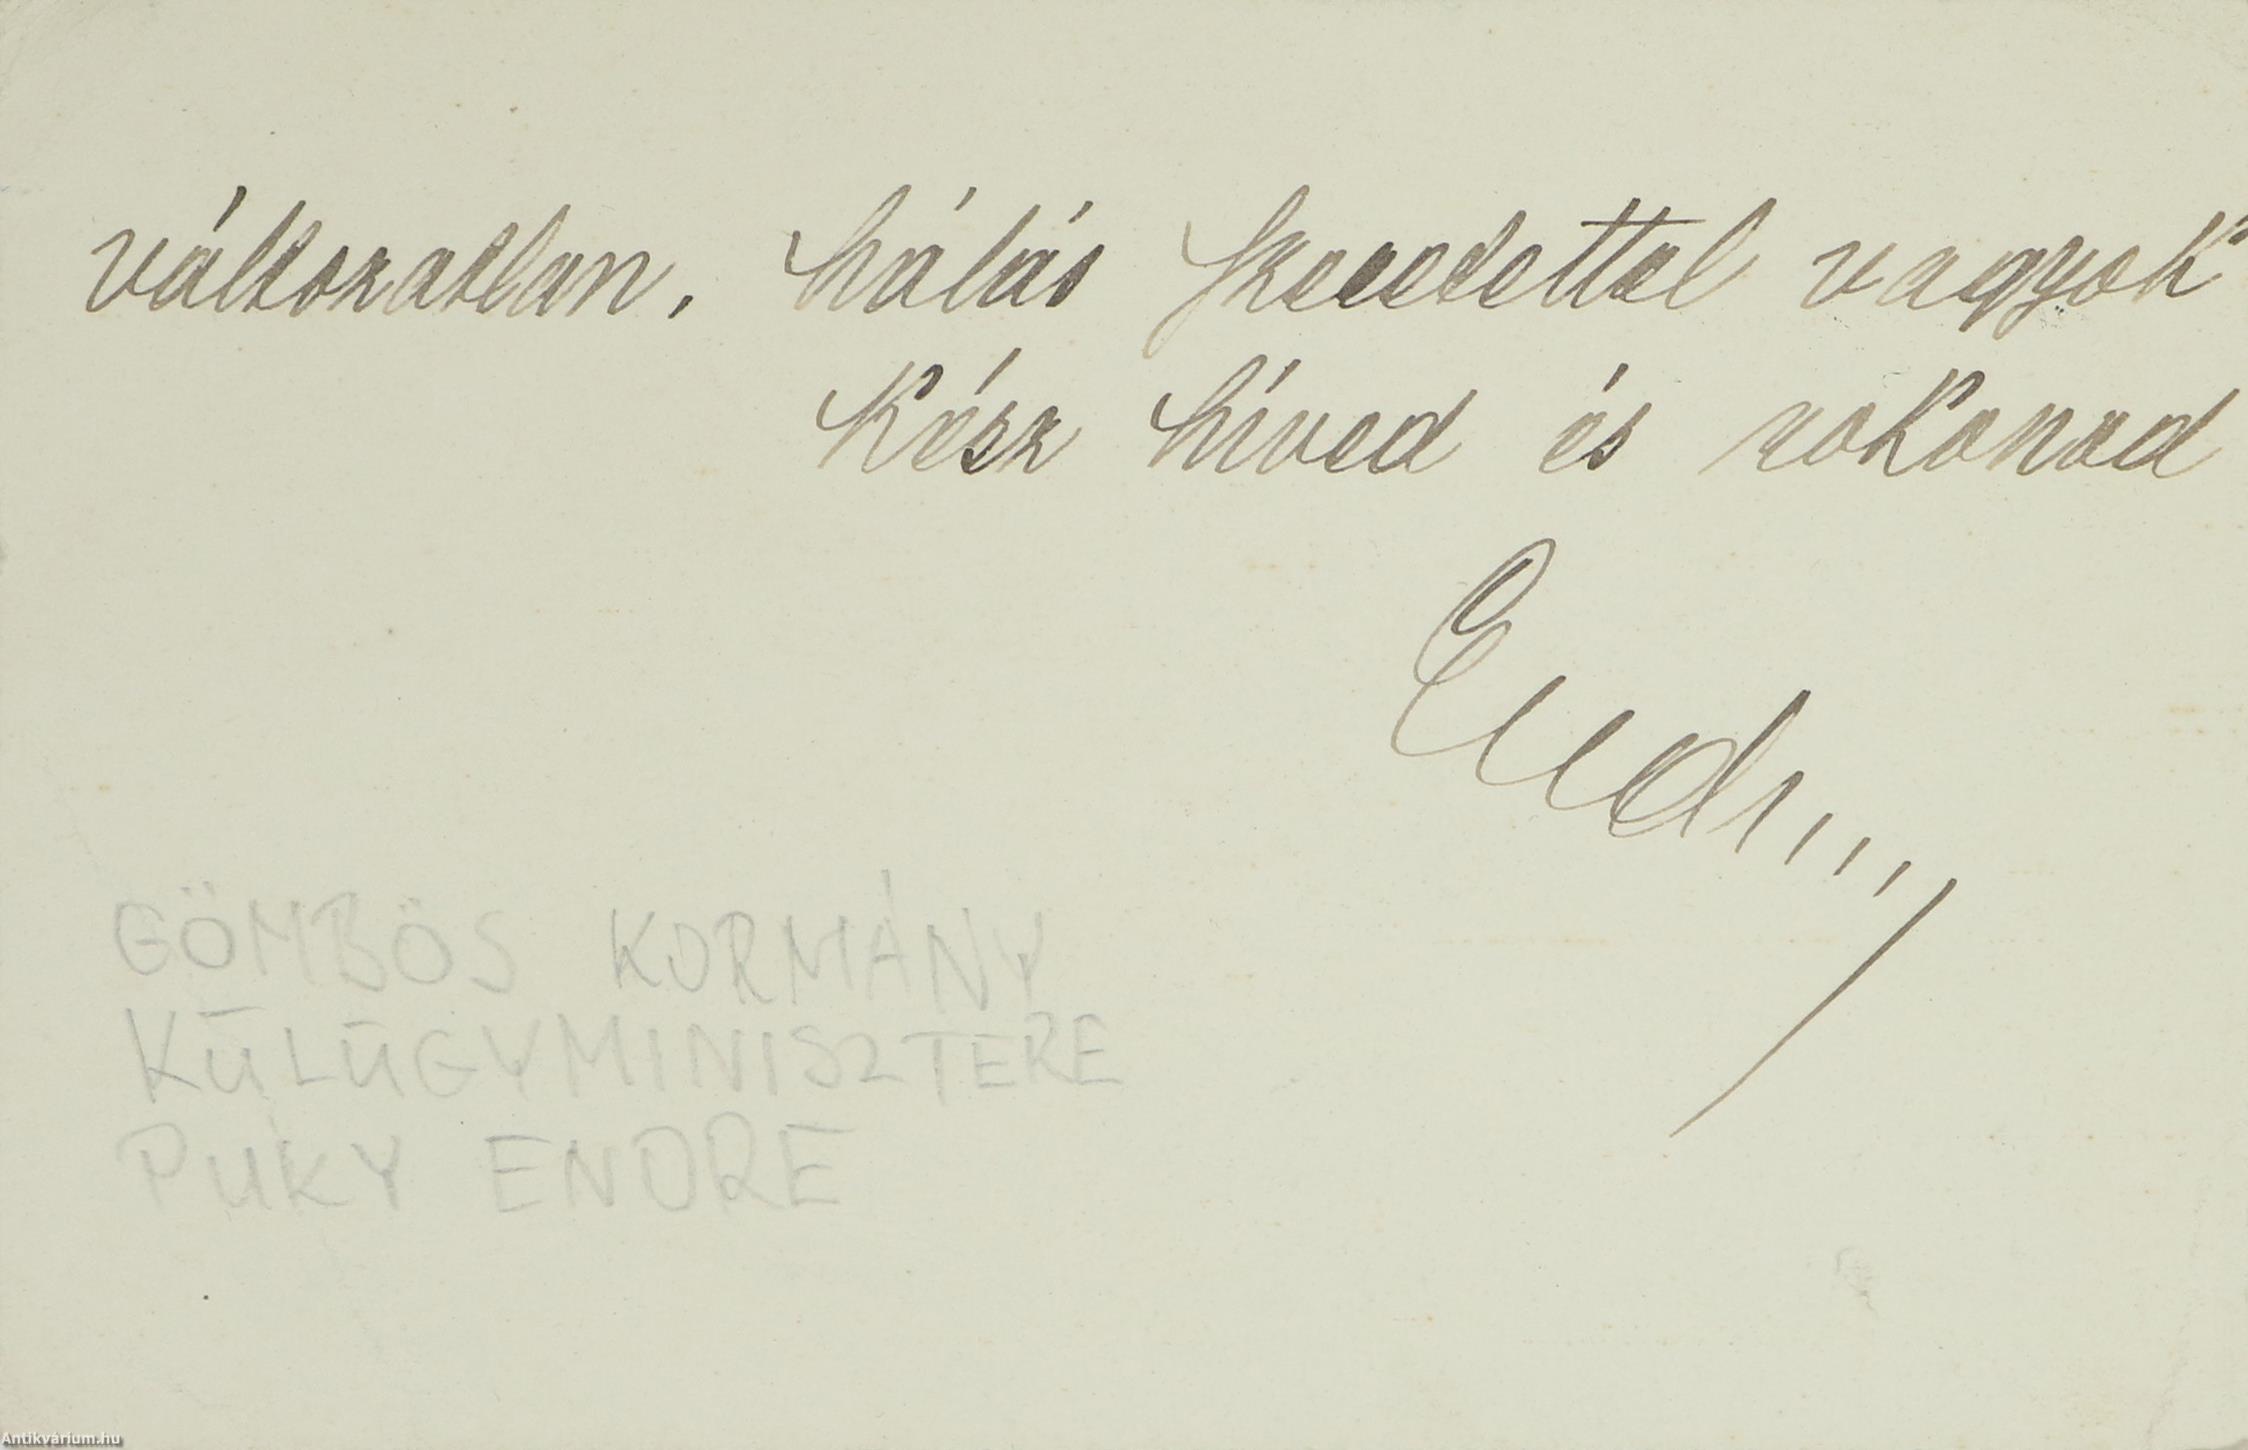 változatlan, hálás szeretettel vagyok
kész híved és rokonod
Endre
GÖMBÖS KORMÁNY
KÜLÜGYMINISZTERE
PUKY ENDRE
Antikvárium.hu